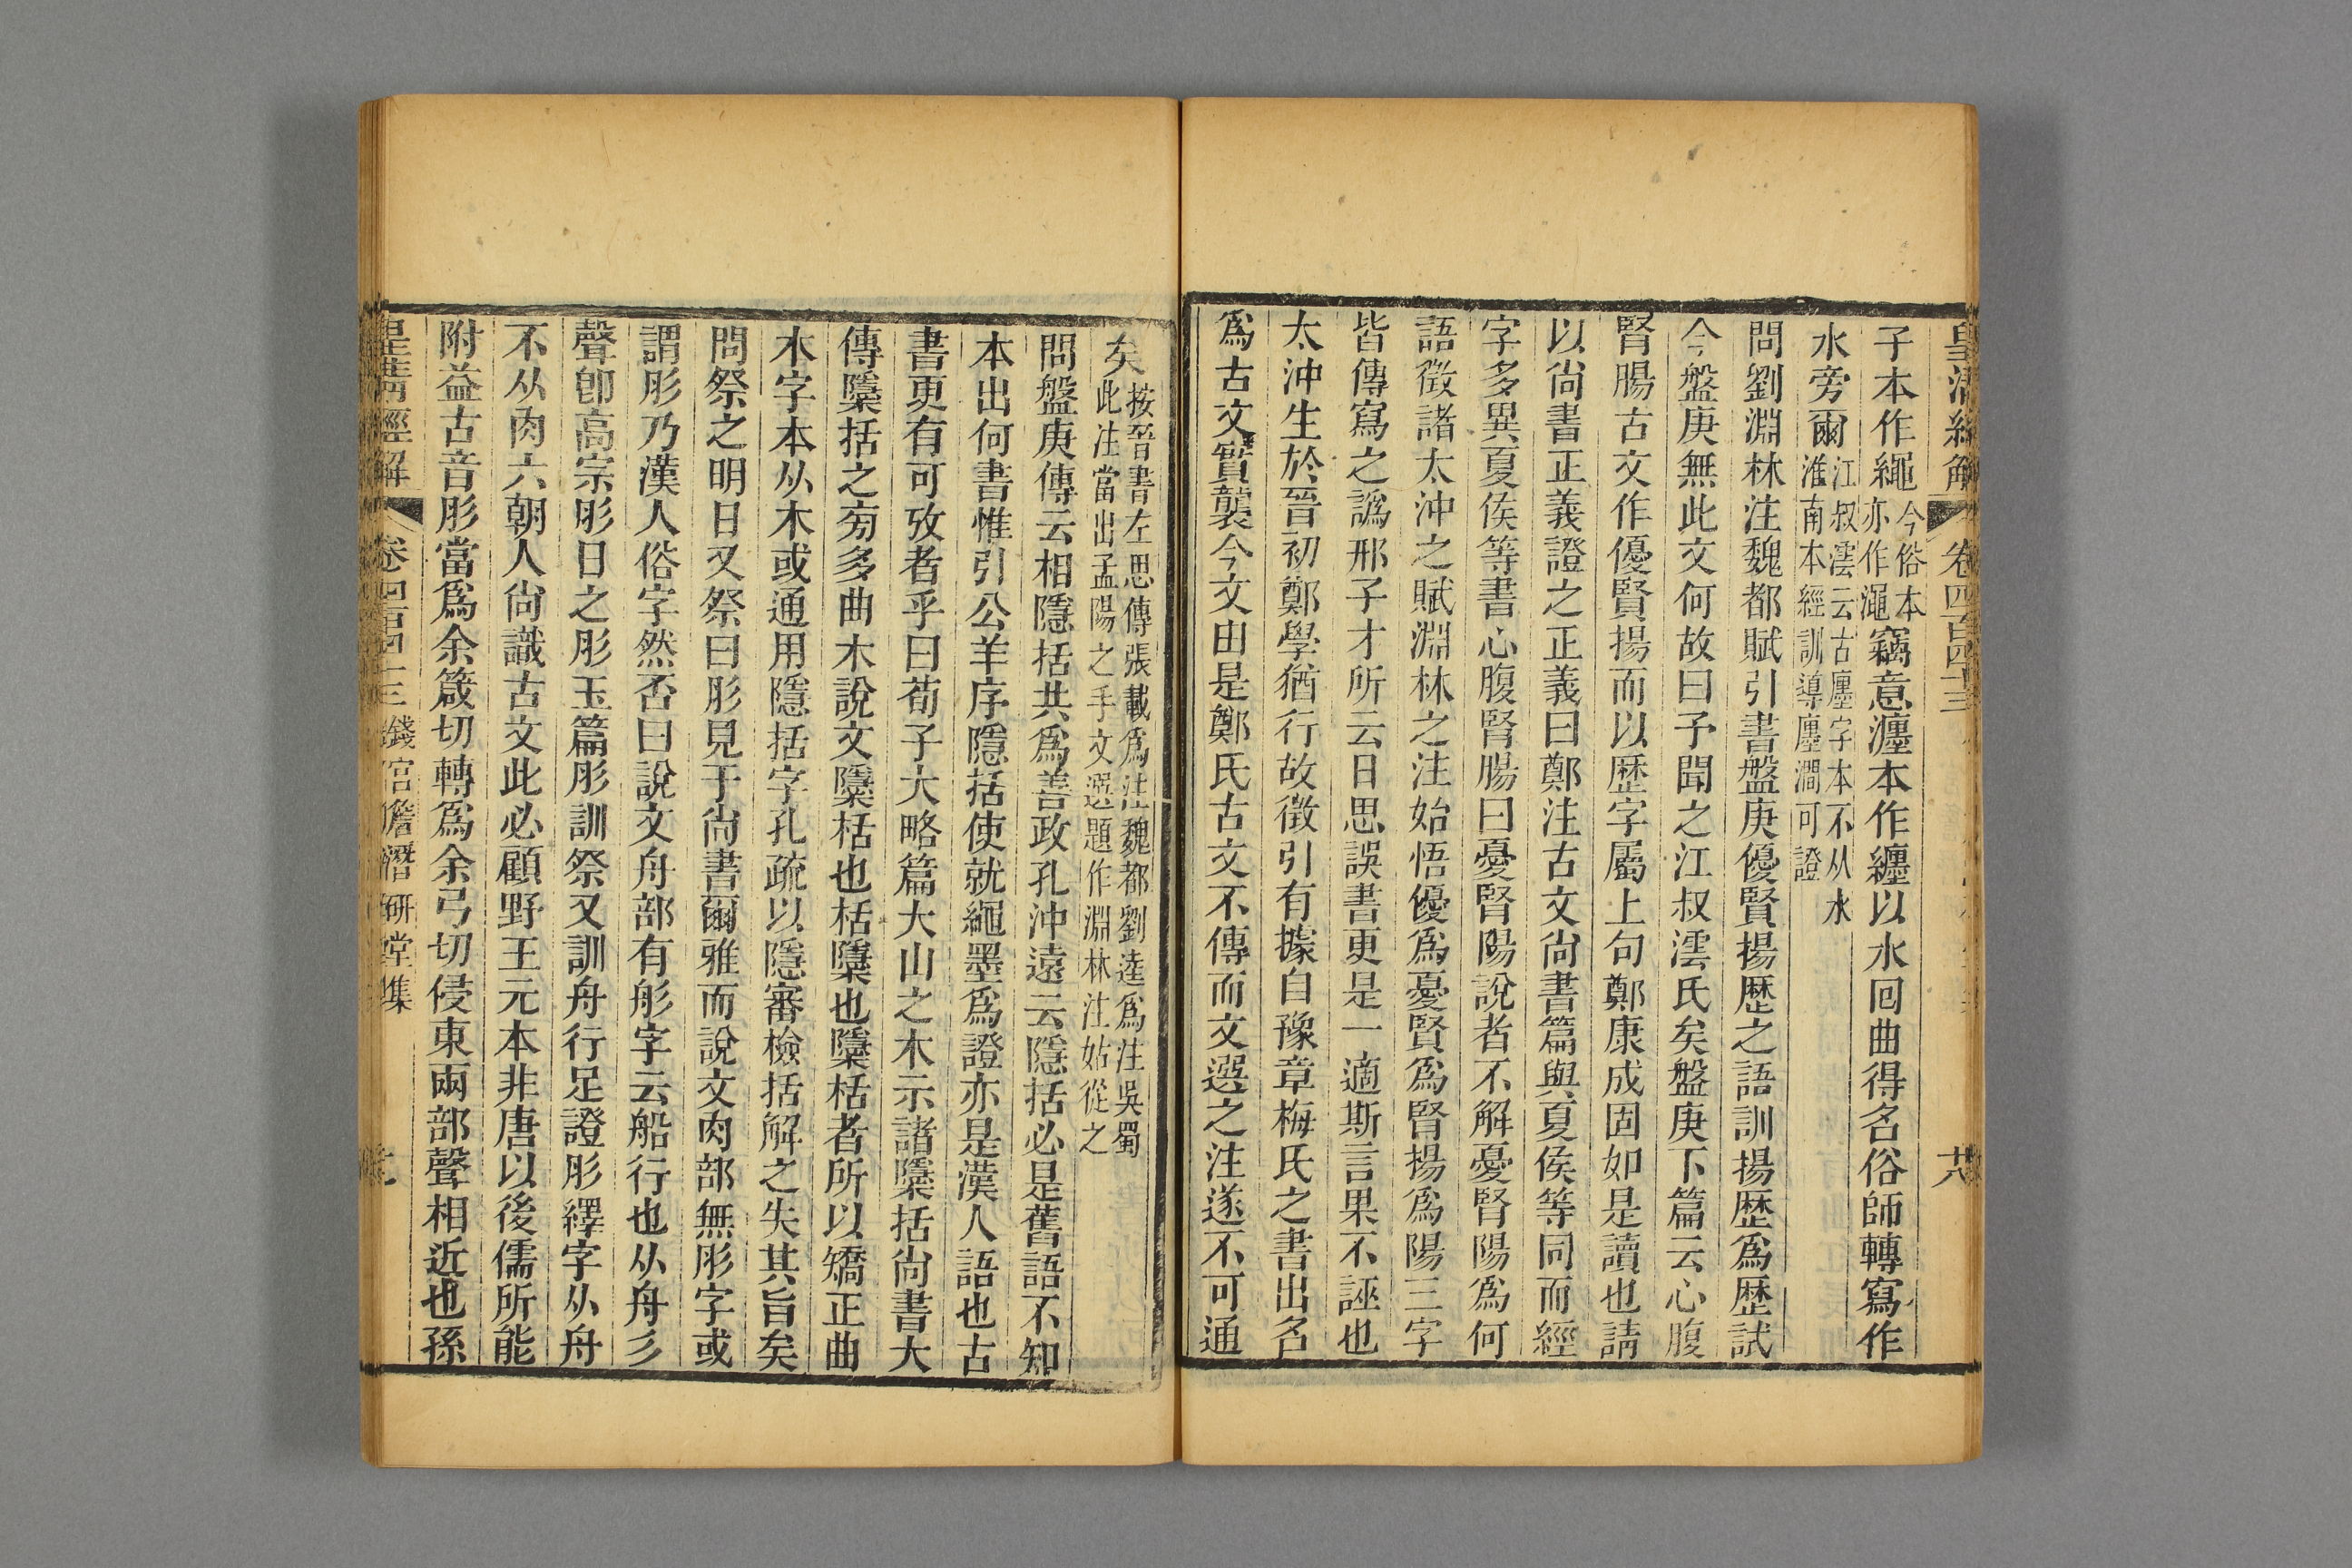 皇清經解 卷四百四十三 大
子本作繩今俗本亦作澠竊意瀍本作纏以水回曲得名俗師轉寫作
水旁爾江叔澐云古廛字本不从水淮南本經訓導廛澗可證
問劉淵林注魏都賦引書盤庚優賢揚歴之語訓揚歴爲歴試
今盤庚無此文何故曰予聞之江叔澐氏矣盤庚下篇云心腹
腎腸古文作優賢揚而以歴字屬上句鄭康成固如是讀也請
以尙書正義證之正義曰鄭注古文尙書篇與夏侯等同而經
字多異夏侯等書心腹腎腸曰憂腎陽說者不解憂腎陽爲何
語徵諸太沖之賦淵林之注始悟優爲憂賢爲腎揚爲陽三字
皆傳寫之譌邢子才所云日思誤書更是一適斯言果不誣也
太沖生於晉初鄭學猶行故徵引有據自豫章梅氏之書出名
爲古文實襲今文由是鄭氏古文不傳而文選之注遂不可通
矣按晉書左思傳張載爲注魏都劉逵爲注吳蜀此注當出孟陽之手文選題作淵林注姑從之
問盤庚傳云相隱括共爲善政孔沖遠云隱括必是舊語不知
本出何書惟引公羊序隱括使就繩墨爲證亦是漢人語也古
書更有可攷者乎曰荀子大略篇大山之木示諸檃括尙書大
傳檃括之旁多曲木說文檃栝也栝檃也檃栝者所以矯正曲
木字本从木或通用隱括字孔疏以隱審檢括解之失其旨矣
問祭之明日又祭曰肜見于尙書爾雅而說文肉部無肜字或
謂肜乃漢人俗字然否曰說文舟部有彤字云船行也从舟彡
聲卽高宗肜日之肜玉篇肜訓祭又訓舟行足證肜繹字从舟
不从肉六朝人尙識古文此必顧野王元本非唐以後儒所能
附益古音肜當爲余箴切轉爲余弓切侵東兩部聲相近也孫
皇清經解 卷四百四十三 錢宮詹潛研堂集